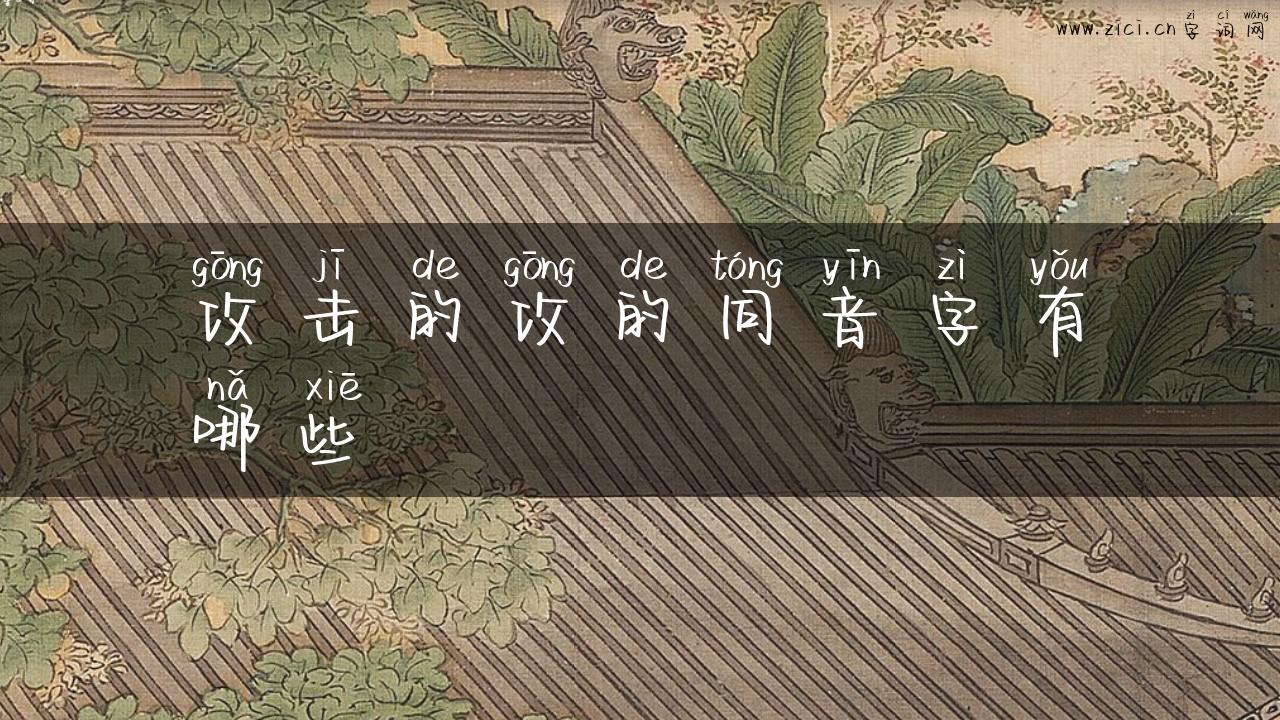 zì cí wǎng
www.zici.cn 字词网
gōng jī de gōng de tóng yīn zì yǒu
攻击的攻的同音字有
nǎ xiē
哪些